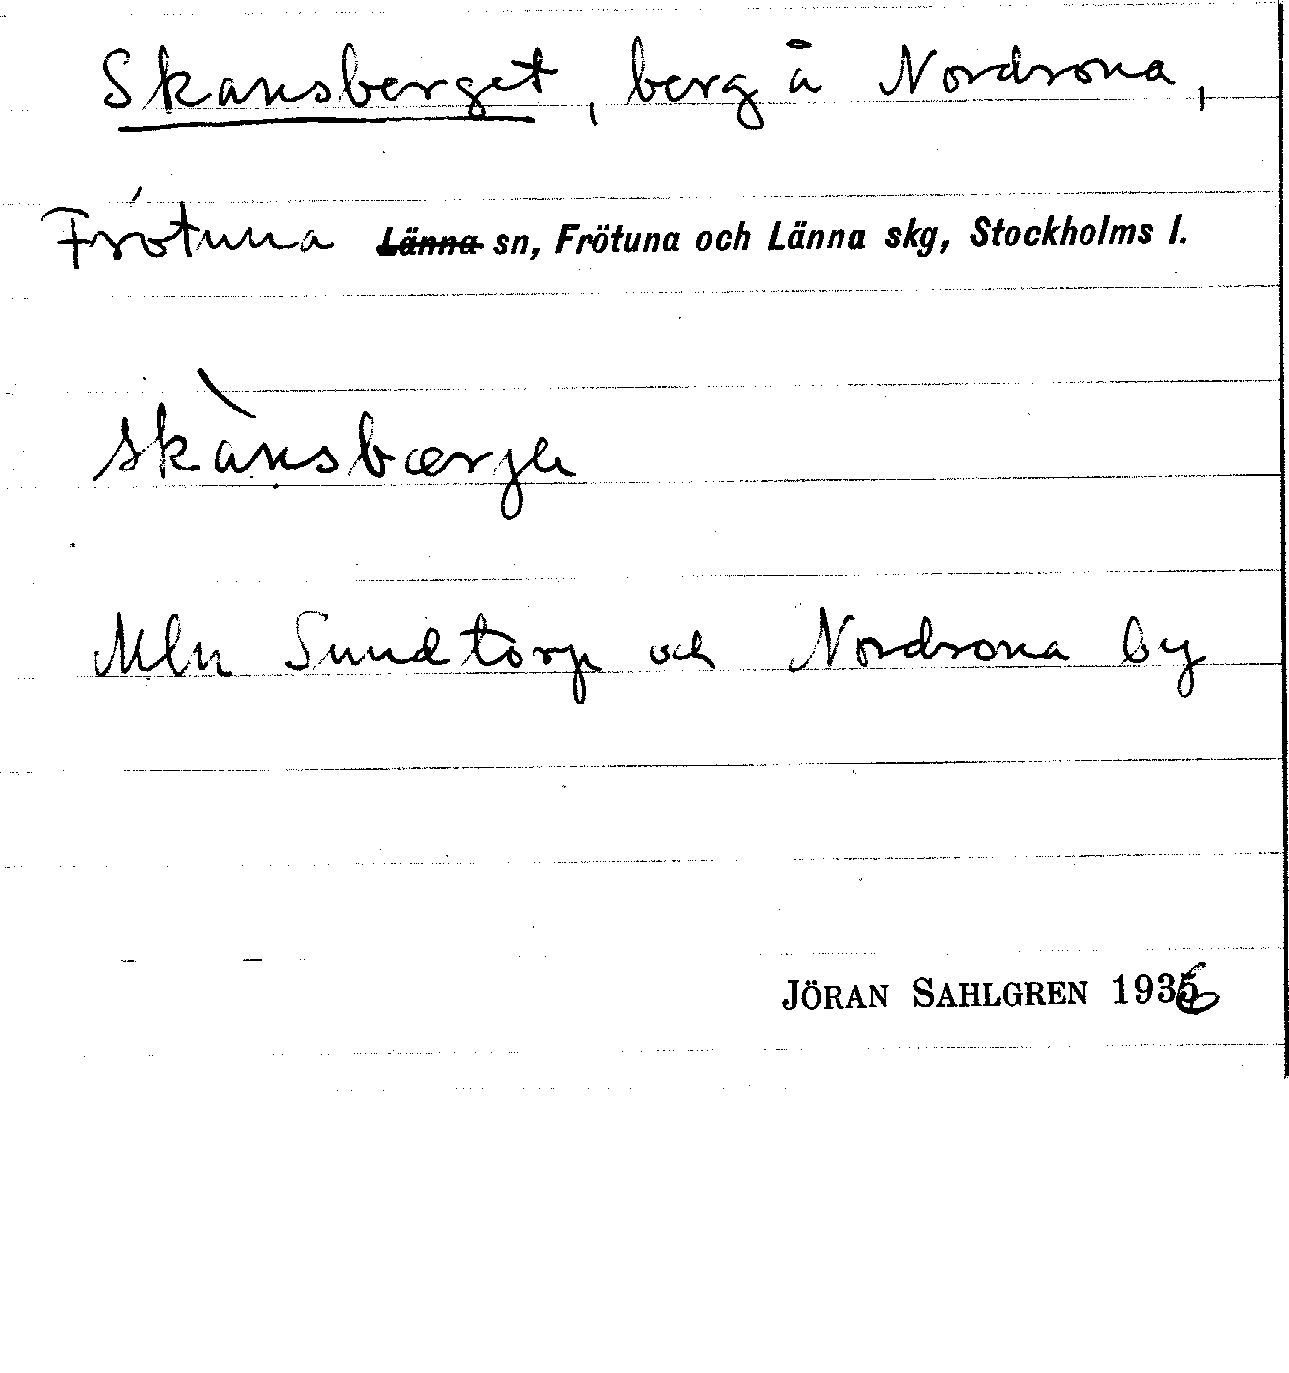 Skansberget, berg å Nordrona,
Frötuna ~~Länna~~ sn, Frötuna och Länna skg, Stockholms l.
skànsbærje
Mln Sundtorp och Nordrona by
JÖRAN SAHLGREN 1936